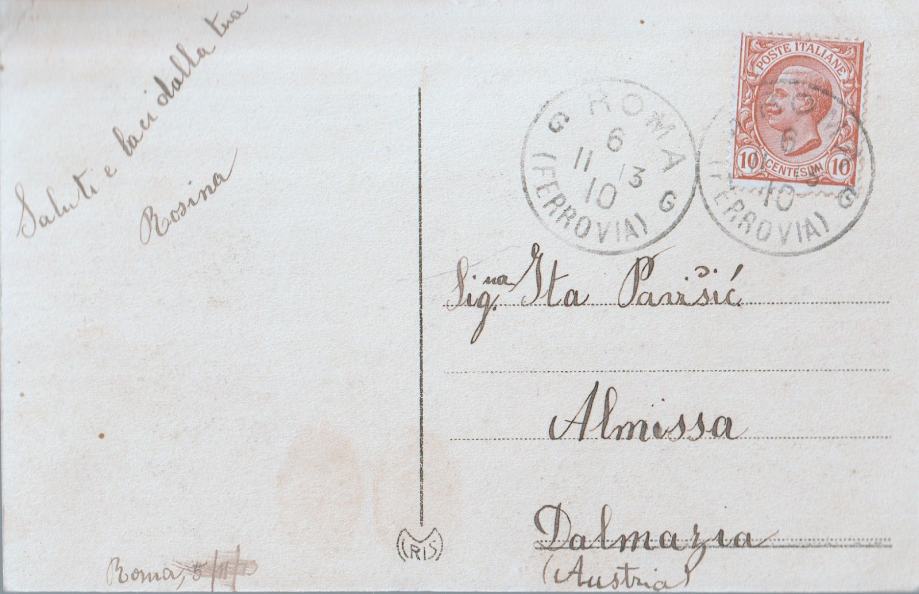 Saluti e baci dalla tua
Rosina
Roma, 5/11/13
POSTE ITALIANE
10 CENTESIMI 10
ROMA
G G
6
11 13
10
(FERROVIA)
ROMA
G
6
10
(FERROVIA)
Sig.na Ita Pavišić
Almissa
Dalmazia
(Austria)
RIS